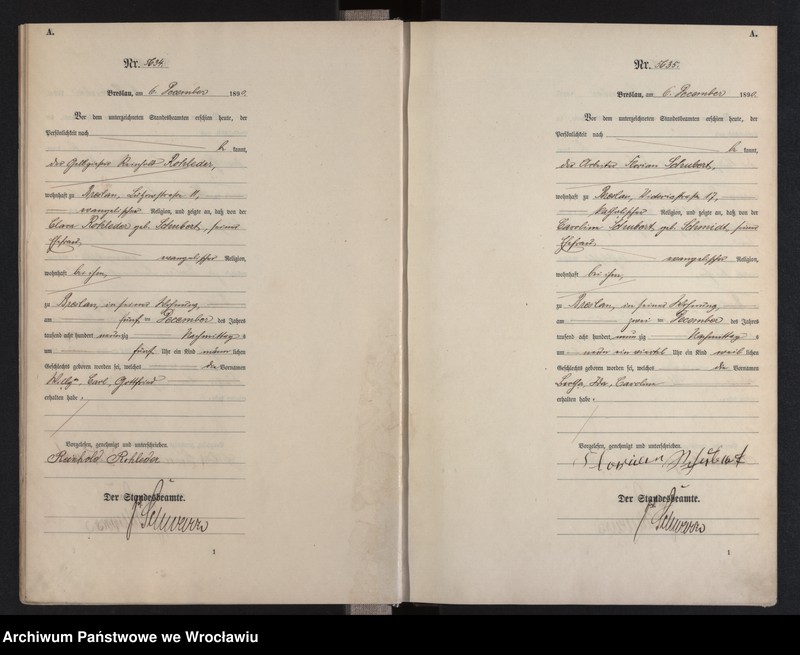 A.
Nr. 5634.
Breslau, am 6. December 1890.
Vor dem unterzeichneten Standesbeamten erschien heute, der
Persönlichkeit nach
kannt,
der Reinhold Rohleder,
wohnhaft zu Breslau, 11,
evangelischer Religion, und zeigte an, daß von der
Clara Rohleder geb. Schubert, seiner
Ehefrau,
evangelischer Religion,
wohnhaft bei ihm,
zu Breslau, in seiner Wohnung,
am fünften December des Jahres
tausend acht hundert neunzig Nachmittags
um fünf Uhr ein Kind männlichen
Geschlechts geboren worden sei, welches die Vornamen
Carl, Gottfried
erhalten habe.
Vorgelesen, genehmigt und unterschrieben.
Reinhold Rohleder
Der Standesbeamte.
1
A.
Nr. 5635.
Breslau, am 6. December 1890.
Vor dem unterzeichneten Standesbeamten erschien heute, der
Persönlichkeit nach
be kannt,
der Arbeiter Florian Schubert,
wohnhaft zu Breslau, 17,
katholischer Religion, und zeigte an, daß von der
Schubert, geb. Schmidt, seiner
Ehefrau,
evangelischer Religion,
wohnhaft bei ihm,
zu Breslau, in seiner Wohnung,
am zweiten December des Jahres
tausend acht hundert neunzig Nachmittags
um neun ein viertel Uhr ein Kind weiblichen
Geschlechts geboren worden sei, welches die Vornamen
Ida, Caroline
erhalten habe.
Vorgelesen, genehmigt und unterschrieben.
Florian Schubert
Der Standesbeamte.
1
Archiwum Państwowe we Wrocławiu